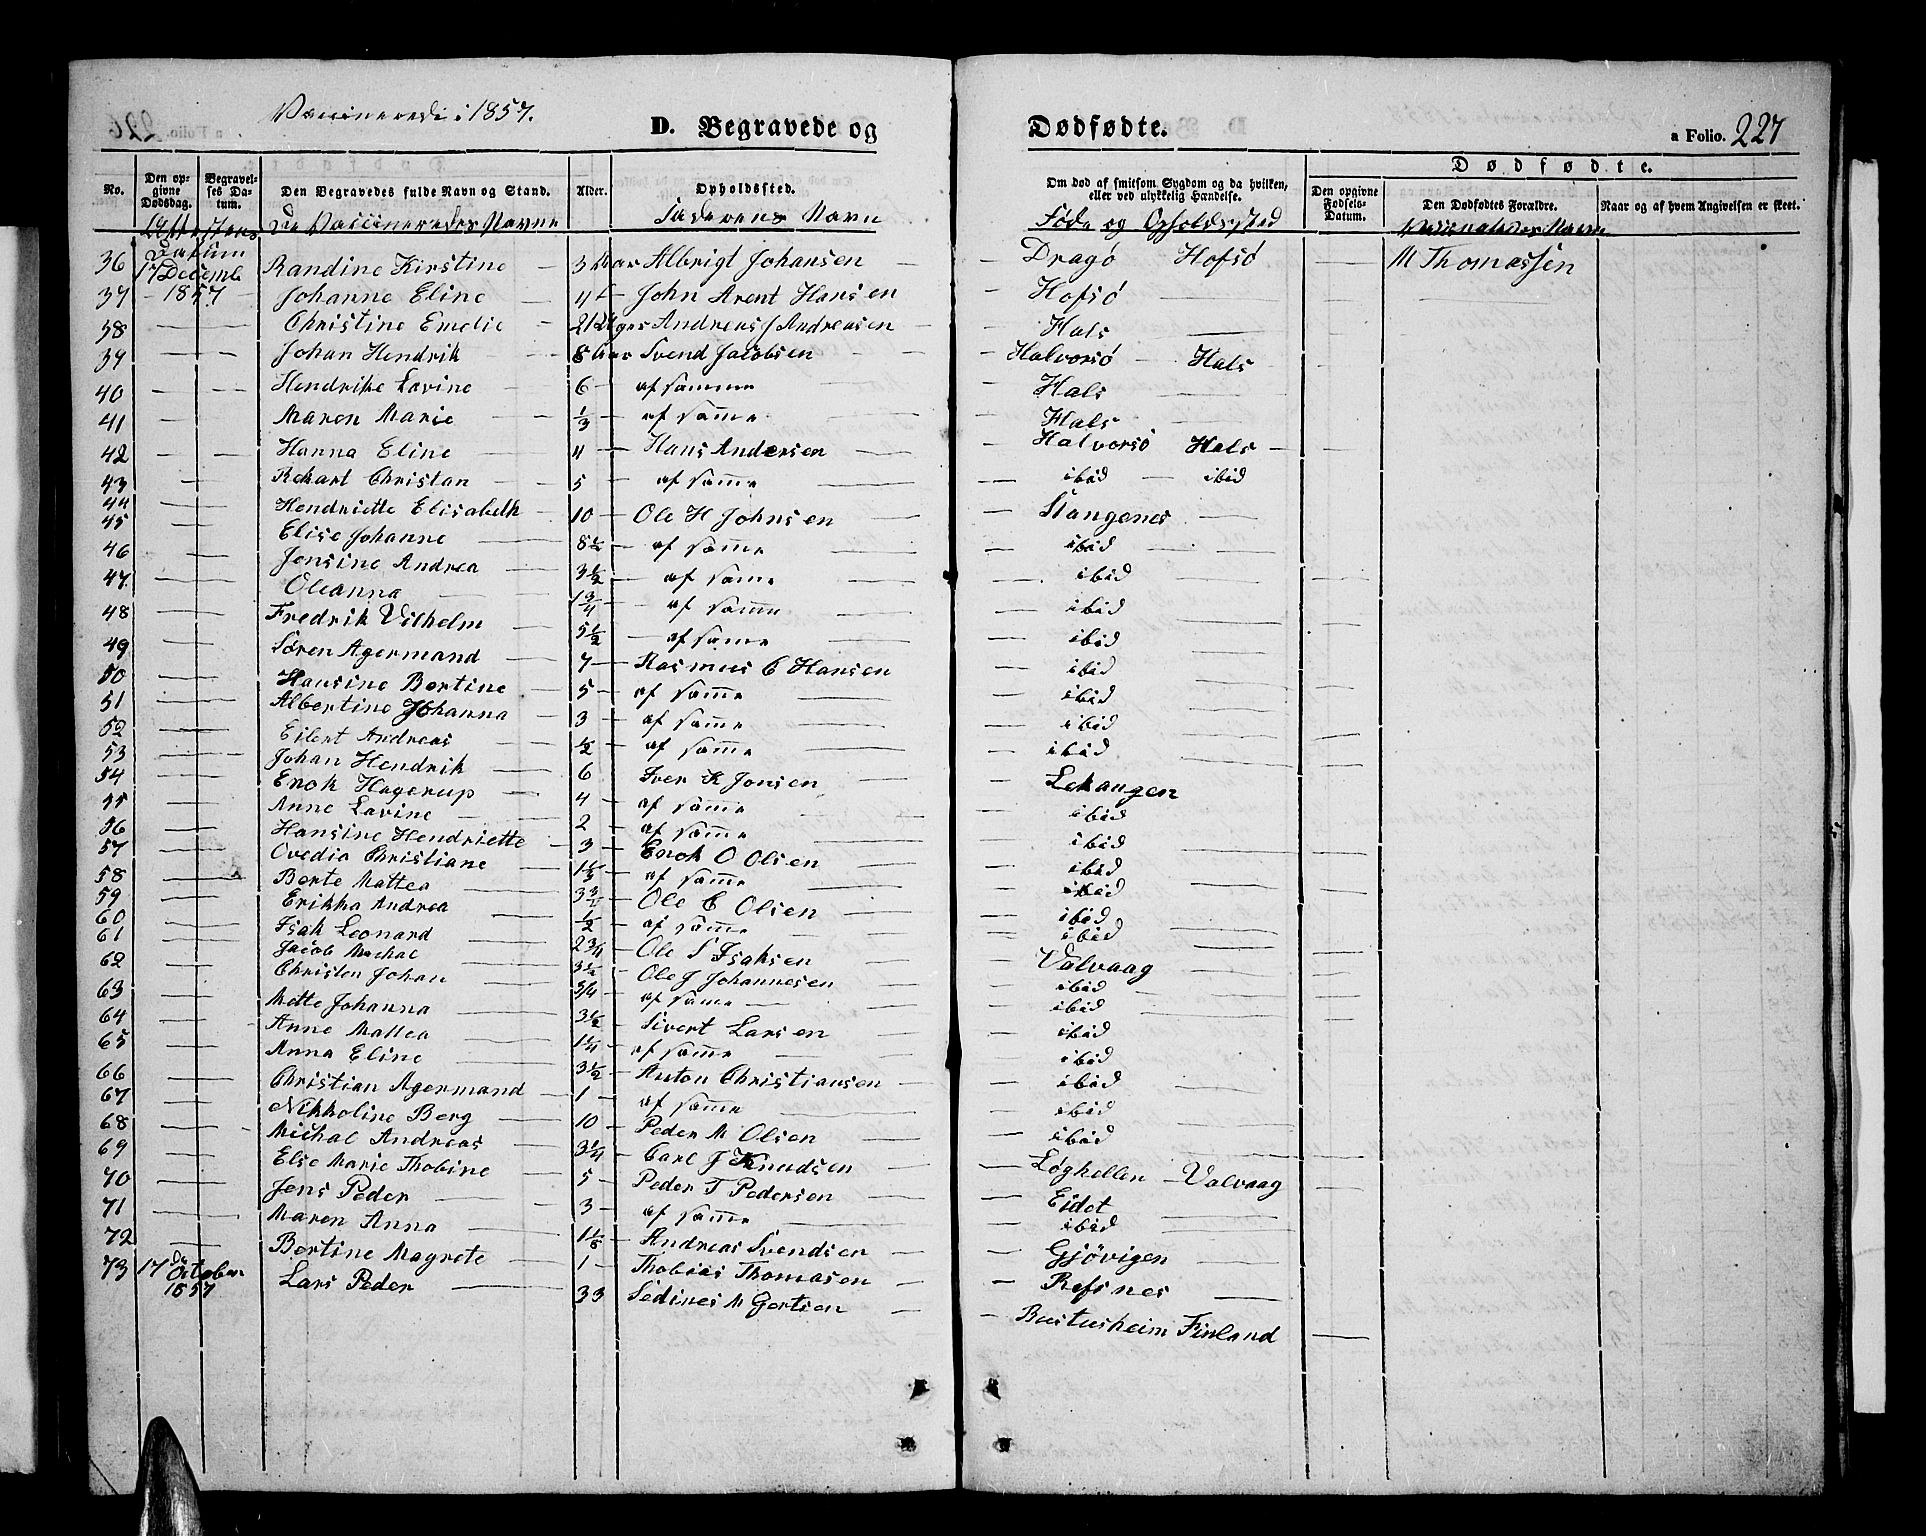 Vaccinerede i 1857.
D. Begravede og Dødfødte. a Folio. 227
No. Den opgivne Dødsdag. Begravelses Datum. Den Begravedes fulde Navn og Stand. Alder. Opholdssted. Om død af smitsom Sygdom og da hvilken, eller ved ulykkelig Hændelse. Dødfødte. Den opgivne Fødsels-Datum. Den Dødfødtes Forældre. Naar og af hvem Angivelsen er skeet.
Attestens Datum De Vaccineredes Navne Faderens Navn Føde og Opholdssted Navn
36 17 Decemb Randine Kirstine 3 Aar Albrigt Johansen Dragö Hofsö M Thomassen
37 1857 Johanne Eline 4 John Arent Hansen Hofsö
38 Christine Emelie Andreas J Andreasen Hals
39 Johan Hendrik 8 Aar Svend Jacobsen Halvorsö Hals
40 Hendrike Lavine 6 af samme Hals
41 Maren Marie 1/3 af samme Hals
42 Hanna Eline 4 Hans Andersen Halvorsö Hals
43 Rekart Christan 5 af samme ibid ibid
44 Hendriette Elisabeth 10 Ole H Johnsen Stangenes
45 Elise Johanne 8½ af samme ibid
46 Jensine Andrea 3½ af same ibid
47 Oleanna 1¾ af samme ibid
48 Fredrik Vilhelm 5½ af same ibid
49 Sören Agermand 7 Rasmus C Hansen ibid
50 Hansine Bertine 5 af samme ibid
51 Albertine Johanna 3 af samme ibid
52 Eilert Andreas ½ af samme ibid
53 Johan Hendrik 6 Iver K Jonsen Lekangen
54 Enok Hagerup 4 af samme ibid
55 Anne Lavine 2 af samme ibid
56 Hansine Hendriette 3 Enok O Olsen ibid
57 Ovedia Christiane af samme ibid
58 Berte Mattea Ole C Olsen ibid
59 Erikka Andrea ½ af samme ibid
60 Isak Leonard 2¾ Ole S Isaksen Valvaag
61 Jacob Machal 3½ Ole J Johannesen ibid
62 Christen Johan 3/4 af same ibid
63 Mette Johanna 3½ Sivert Larsen ibid
64 Anne Mattea 1¼ af samme ibid
65 Anna Eline 3½ Anton Christiansen ibid
66 Christian Agermand 1 af samme ibid
67 Nikkoline Berg 10 Peder M Olsen ibid
68 Michal Andreas 3¼ Carl J Knudsen Løghellen Valvaag
69 Else Marie Thobine 5 Peder T Pedersen Eidet
70 Jens Peder 3 af samme ibid
71 Maren Anna Andreas Svendsen Gjövigen
72 Bertine Magrete 1 Thobias Thomasen Refsnes
73 17de October 1857 Lars Peder 33 Sedines M Gertsen Finland